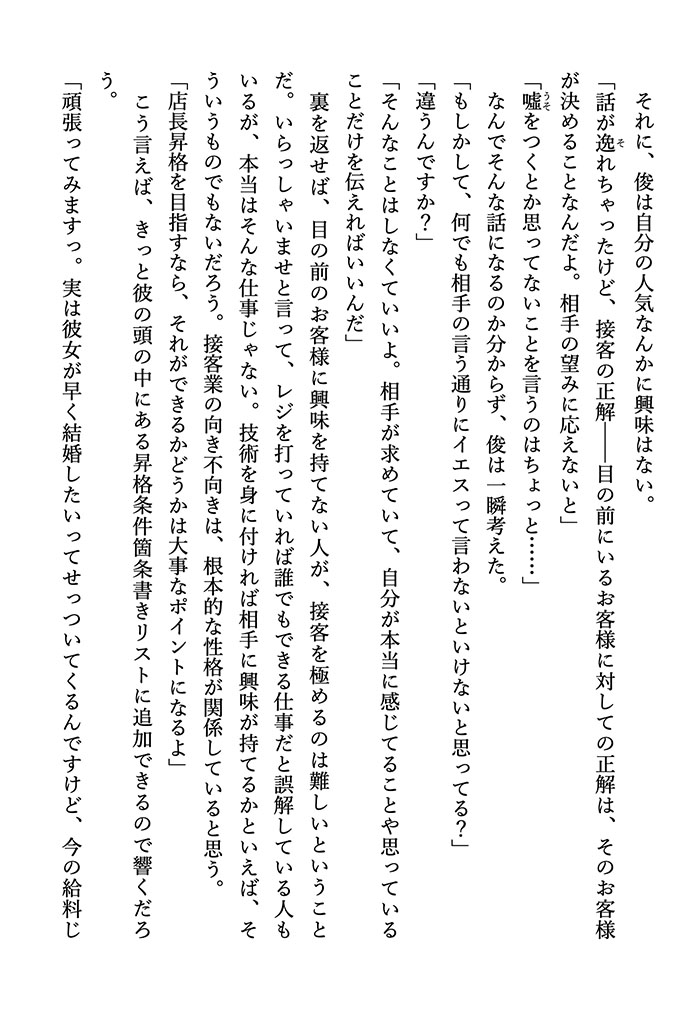 それに、俊は自分の人気なんかに興味はない。
「話が逸れちゃったけど、接客の正解――目の前にいるお客様に対しての正解は、そのお客様
が決めることなんだよ。相手の望みに応えないと」
「噓をつくとか思ってないことを言うのはちょっと……」
なんでそんな話になるのか分からず、俊は一瞬考えた。
「もしかして、何でも相手の言う通りにイエスって言わないといけないと思ってる？」
「違うんですか？」
「そんなことはしなくていいよ。相手が求めていて、自分が本当に感じてることや思っている
ことだけを伝えればいいんだ」
裏を返せば、目の前のお客様に興味を持てない人が、接客を極めるのは難しいということ
だ。いらっしゃいませと言って、レジを打っていれば誰でもできる仕事だと誤解している人も
いるが、本当はそんな仕事じゃない。技術を身に付ければ相手に興味が持てるかといえば、そ
ういうものでもないだろう。接客業の向き不向きは、根本的な性格が関係していると思う。
「店長昇格を目指すなら、それができるかどうかは大事なポイントになるよ」
こう言えば、きっと彼の頭の中にある昇格条件箇条書きリストに追加できるので響くだろ
う。
「頑張ってみますっ。実は彼女が早く結婚したいってせっついてくるんですけど、今の給料じ